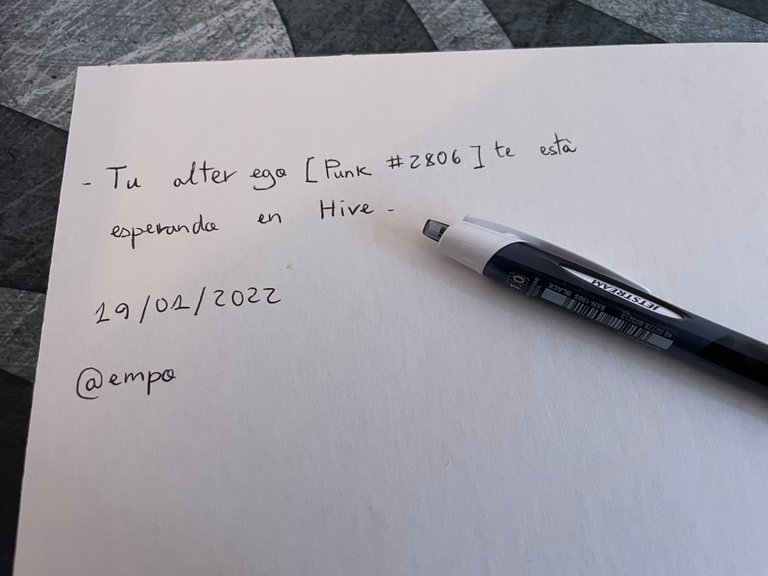 - Tu alter ego [Punk #2806] te està
esperando en Hive -
19/01/2022
@empo
JETSTREAM
SXN-150S BLACK